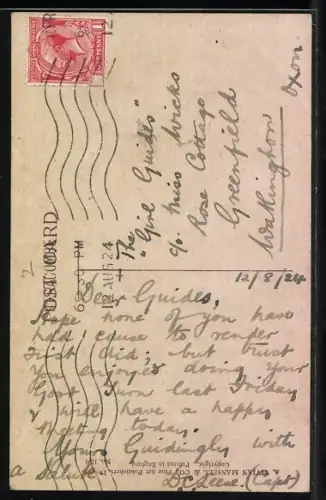 POST CARD
6:30 PM
12 AUG 24
The
"Girl Guides"
c/o Miss Wicks
Rose Cottage
Greenfield
Watlington
Oxon
12/8/24
Dear Guides,
Hope none of you have
had cause to
Just did, but trust
you enjoyed doing your
Good Turn last Friday
& will have a happy
Meeting today.
Yours Guidingly with
a Salute.
(Capt)
A. VIVIAN MANSELL & CO., Fine Art Publishers,
Copyright. Printed in England.